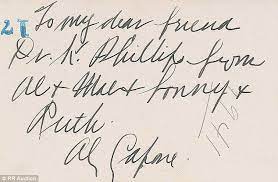 27
To my dear friend
Dr. K. Phillips from
Al + Mae + Sonny +
Ruth.
Al Capone.
1941
© RR Auction